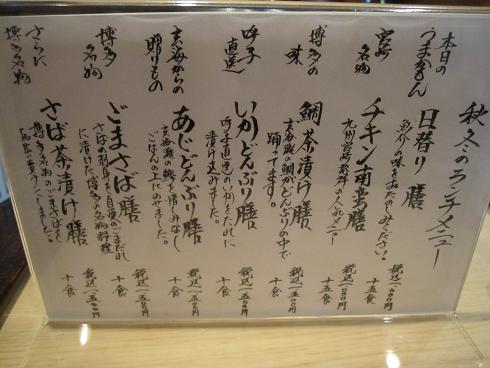 秋冬のランチメニュー
本日の
うまかもん
日替り膳
魚介の味をおたのしみください。
税込一〇〇〇円
十五食
宮崎
名物
チキン南蛮膳
九州宮崎
人気メニュー
税込一〇〇〇円
十五食
博多の
味
鯛茶漬け膳
玄海灘の鯛がどんぶりの中で
踊ってます。
税込一五〇〇円
十食
呼子
直送
いかどんぶり膳
呼子直送のいかをたれに
漬け込みました。
税込一五〇〇円
十食
玄海からの
贈りもの
あじどんぶり膳
玄海灘の鯵を惜しみなし
ごはんの上にのせました。
税込一五〇〇円
十食
博多
名物
ごまさば膳
さばの刺身を自慢のごまだれ
に漬けた博多の名物料理
税込一五〇〇円
十食
さらに
博多名物
さば茶漬け膳
博多名物のごまさばを
税込一五〇〇円
十食